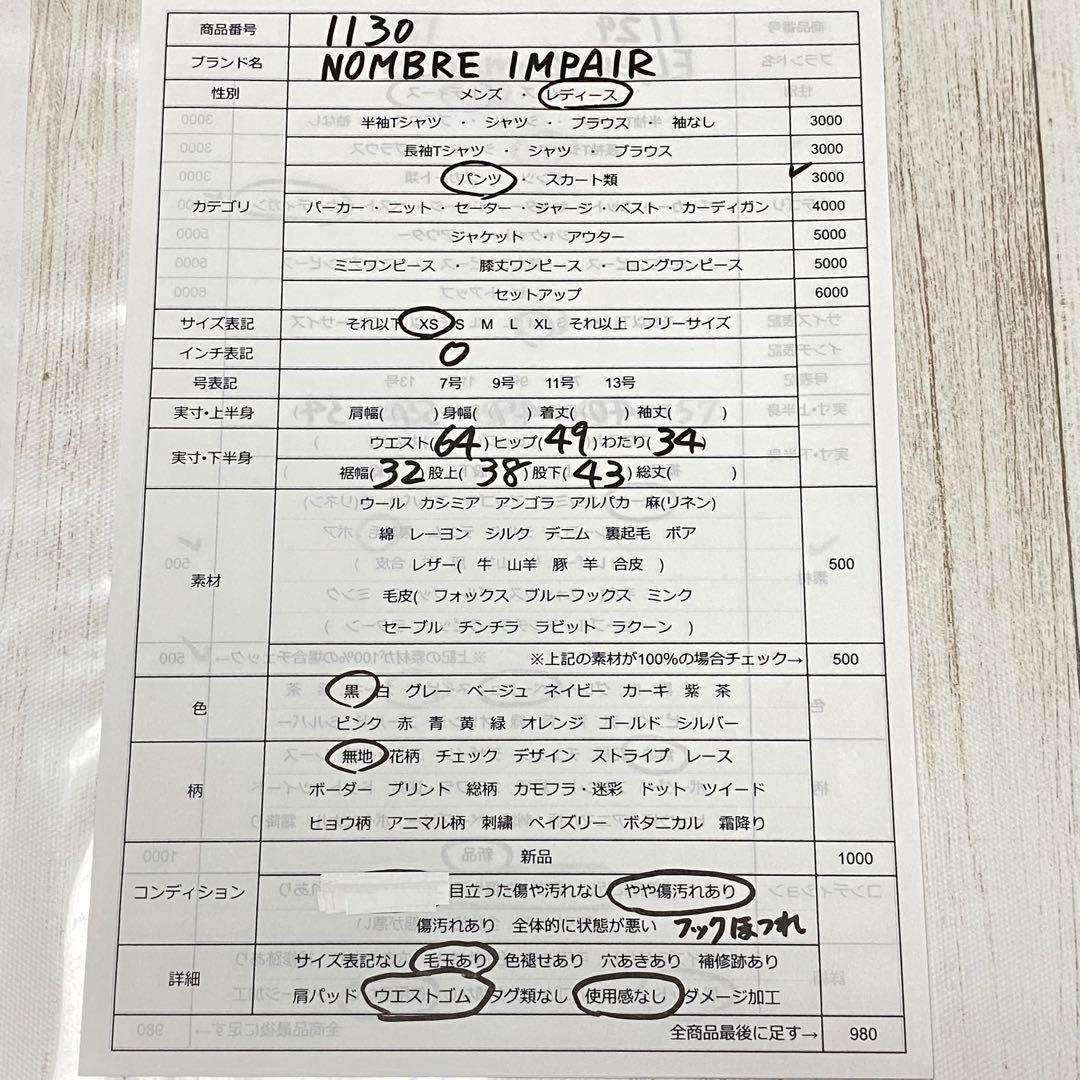 商品番号 1130
ブランド名 NOMBRE IMPAIR
性別 メンズ ・ レディース
半袖Tシャツ ・ シャツ ・ ブラウス ・ 袖なし 3000
長袖Tシャツ ・ シャツ ・ ブラウス 3000
パンツ ・ スカート類 3000
カテゴリ パーカー・ニット・セーター・ジャージ・ベスト・カーディガン 4000
ジャケット ・ アウター 5000
ミニワンピース ・ 膝丈ワンピース ・ ロングワンピース 5000
セットアップ 6000
サイズ表記 それ以下 XS S M L XL それ以上 フリーサイズ
インチ表記 0
号表記 7号 9号 11号 13号
実寸・上半身 肩幅( )身幅( )着丈( )袖丈( )
実寸・下半身 ウエスト(64)ヒップ(49)わたり(34)
裾幅(32)股上(38)股下(43)総丈( )
ウール カシミア アンゴラ アルパカ 麻(リネン)
綿 レーヨン シルク デニム 裏起毛 ボア
レザー( 牛 山羊 豚 羊 合皮 ) 500
素材 毛皮( フォックス ブルーフックス ミンク
セーブル チンチラ ラビット ラクーン )
※上記の素材が100%の場合チェック→ 500
色 黒 白 グレー ベージュ ネイビー カーキ 紫 茶
ピンク 赤 青 黄 緑 オレンジ ゴールド シルバー
無地 花柄 チェック デザイン ストライプ レース
柄 ボーダー プリント 総柄 カモフラ・迷彩 ドット ツイード
ヒョウ柄 アニマル柄 刺繍 ペイズリー ボタニカル 霜降り
新品 1000
コンディション 目立った傷や汚れなし やや傷汚れあり
傷汚れあり 全体的に状態が悪い フックほつれ
詳細 サイズ表記なし 毛玉あり 色褪せあり 穴あきあり 補修跡あり
肩パッド ウエストゴム タグ類なし 使用感なし ダメージ加工
全商品最後に足す→ 980